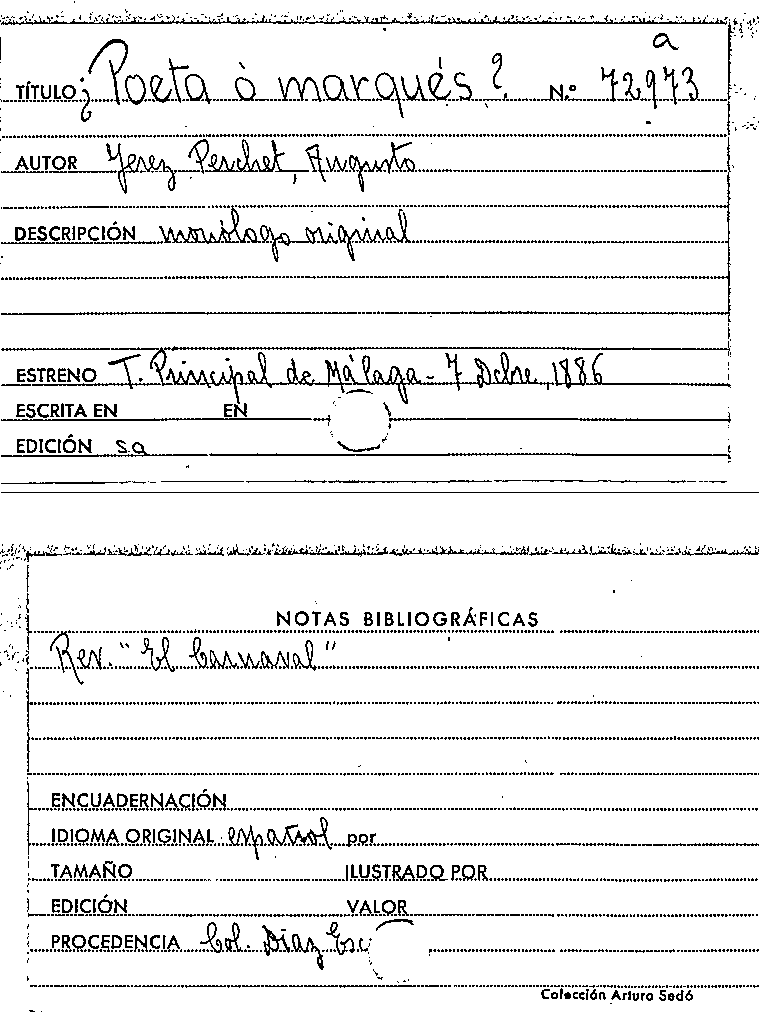 a
TÍTULO ¿Poeta ò marqués? N.º 72973
AUTOR Jerez Perchet, Augusto
DESCRIPCIÓN monólogo original
ESTRENO T. Principal de Málaga - 7 Dcbre, 1886
ESCRITA EN EN
EDICIÓN s.a
NOTAS BIBLIOGRÁFICAS
Rev. "El Carnaval"
ENCUADERNACIÓN
IDIOMA ORIGINAL español por
TAMAÑO ILUSTRADO POR
EDICIÓN VALOR
PROCEDENCIA Col. Díaz Esc
Colección Arturo Sedó